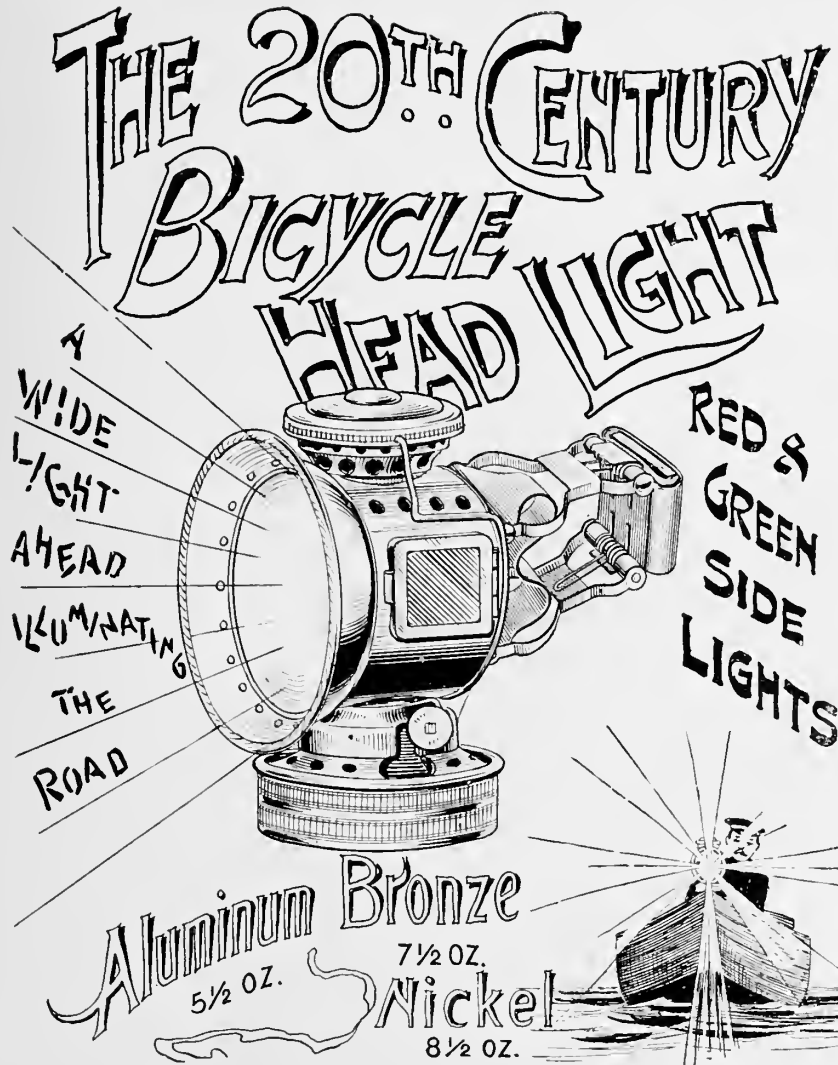 THE 20TH CENTURY
BICYCLE
HEAD LIGHT
A
WIDE
LIGHT
AHEAD
ILLUMINATING
THE
ROAD
RED &
GREEN
SIDE
LIGHTS
Aluminum
5½ OZ.
Bronze
7½ OZ.
Nickel
8½ OZ.